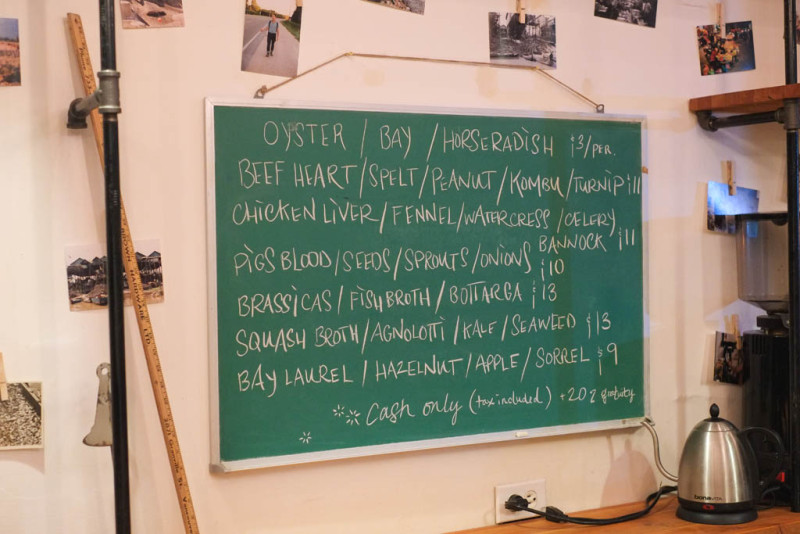 OYSTER / BAY / HORSERADISH $3/PER.
BEEF HEART/SPELT/PEANUT/KOMBU/TURNIP $11
CHICKEN LIVER/FENNEL/WATERCRESS/CELERY
BANNOCK $11
PIGS BLOOD/SEEDS/SPROUTS/ONIONS $10
BRASSICAS/FISH BROTH/BOTTARGA $13
SQUASH BROTH/AGNOLOTTI/KALE/SEAWEED $13
BAY LAUREL / HAZELNUT/APPLE/SORREL $9
Cash only (tax included) +20% gratuity
bonavita